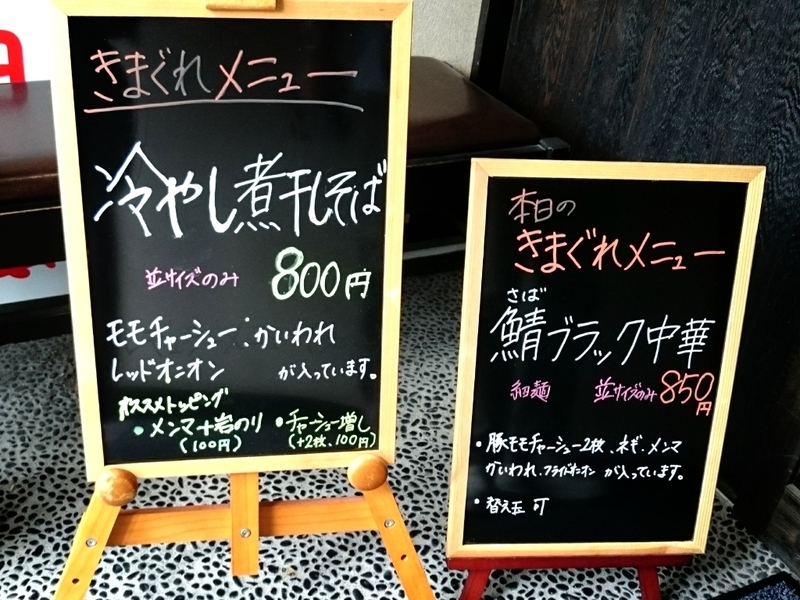 きまぐれメニュー
冷やし煮干しそば
並サイズのみ 800円
モモチャーシュー、かいわれ
レッドオニオン が入っています。
オススメトッピング
・メンマ+岩のり
(100円)
・チャーシュー増し
(+2枚、100円)
本日の
きまぐれメニュー
さば
鯖ブラック中華
細麺 並サイズのみ 850円
・豚モモチャーシュー2枚、ネギ・メンマ
かいわれ、フライドオニオン が入っています。
・替え玉 可